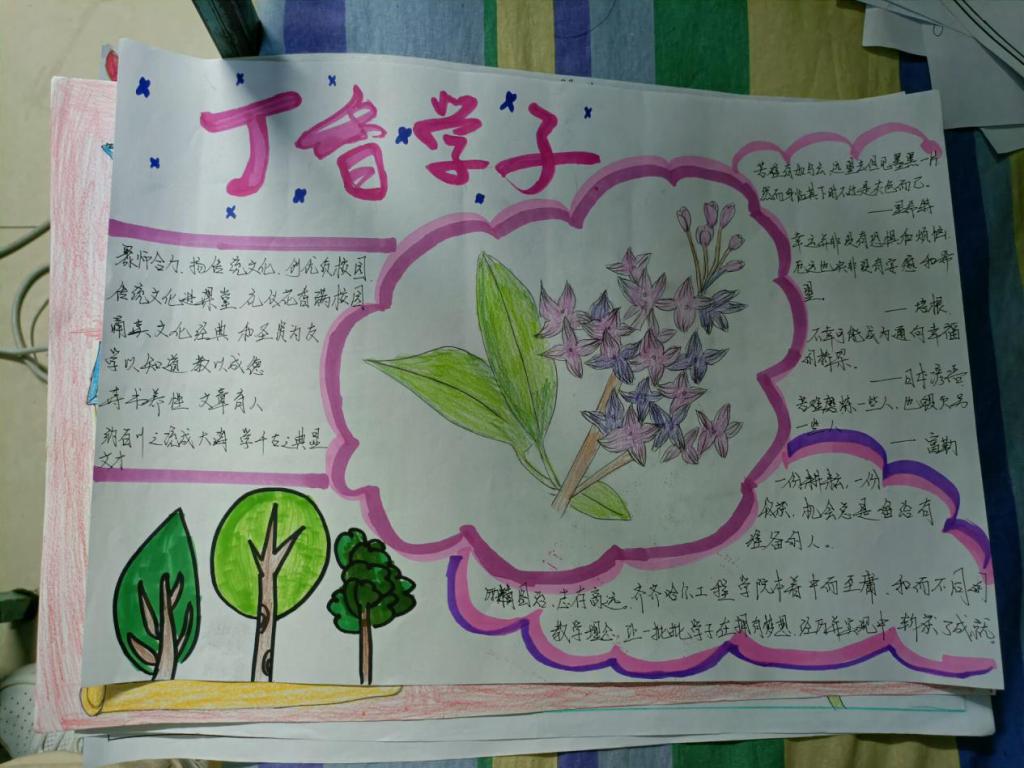 丁香学子
聚师合力 扬传统文化 创优质校园
传统文化进课堂 礼仪花香满校园
诵真文化经典 和圣贤为友
学以知道 教以成德
寺书养性 文章育人
纳百川之流成大海 学千古之典显
文才
苦难有如乌云 远望去但见墨黑一片
然而身临其下时不过是灰色而已。
——里希特
幸运并非没有恐惧和烦恼
厄运也并非没有安慰和希
望
——培根
不幸可能成为通向幸福
的桥梁。
——日本谚语
苦难磨炼一些人,也毁灭另
一些人
—— 富勒
一份耕耘,一份
收获,机会总是留给有
准备的人。
志在高远。齐齐哈尔工程学院本着中而至庸,和而不同的
教学理念,让一批批学子在拥有梦想,经历并实现中,收获了成就